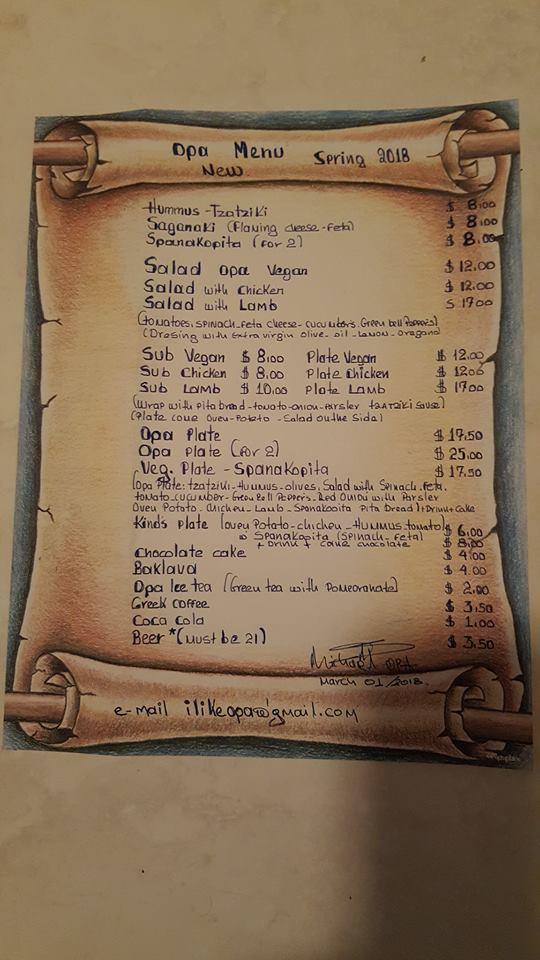 Opa Menu Spring 2018
New
Hummus - Tzatziki $ 8.00
Saganaki (Flaming cheese - feta) $ 8.00
Spanakopita (for 2) $ 8.00
Salad Opa Vegan $ 12.00
Salad with Chicken $ 12.00
Salad with Lamb $ 17.00
(Tomatoes, spinach - feta cheese - cucumbers, Green bell Peppers)
(Dresing with Extra virgin olive - oil - Lemon - oregano)
Sub Vegan $ 8.00 Plate Vegan $ 12.00
Sub Chicken $ 8.00 Plate Chicken $ 12.00
Sub Lamb $ 10.00 Plate Lamb $ 17.00
(Wrap with Pita bread - tomato - onion - Parsley tzatziki sause)
(Plate come Oven - Potato - Salad on the side)
Opa Plate $ 17.50
Opa plate (for 2) $ 25.00
Veg. Plate - Spanakopita $ 17.50
(Opa Plate: tzatziki - Hummus - olives, Salad with Spinach, feta,
tomato - cucumber - Green Bell Peppers, Red Onion with Parsley
Oven Potato - Chicken - Lamb - Spanakopita Pita Bread) + Drink + Cake
Kind's Plate (oven Potato - chicken - Hummus, tomato) $ 6.00
Spanakopita (Spinach - feta)
+ Drink + cake chocolate $ 8.00
Chocolate cake $ 4.00
Baklava $ 4.00
Opa Ice tea (Green tea with Pomegranate) $ 2.00
Greek coffee $ 3.50
Coca Cola $ 1.00
Beer *(Must be 21) $ 3.50
OPA
March 01/2018.
e-mail ilikeopa@gmail.com